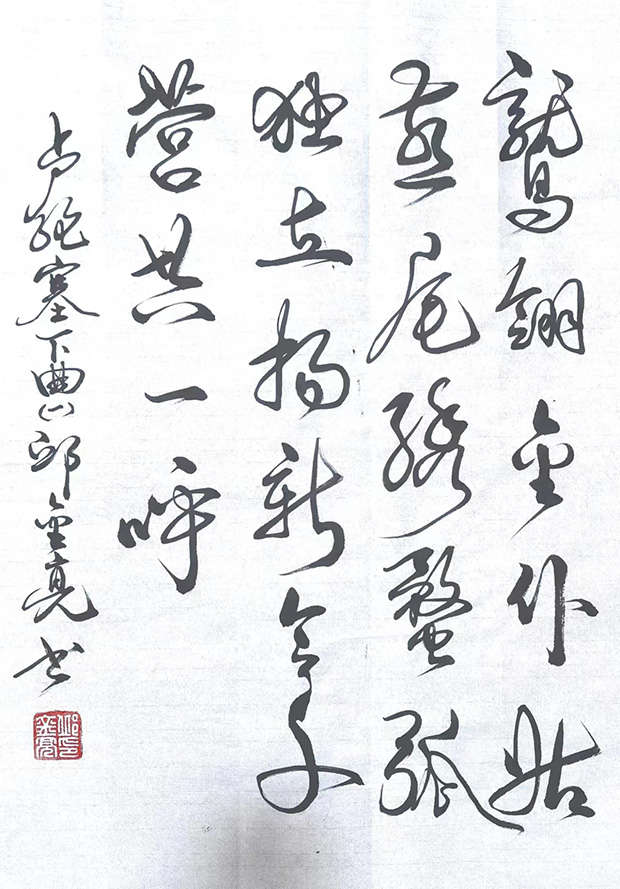 鷲翎金仆姑
燕尾绣蝥弧
独立扬新令千
营共一呼
卢纶塞下曲 邱金亮书
邱印金亮